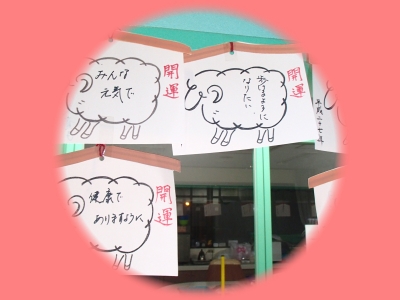 みんな
元気で
開運
歩けるように
なりたい
開運
平成二十七年
健康で
ありますように
開運